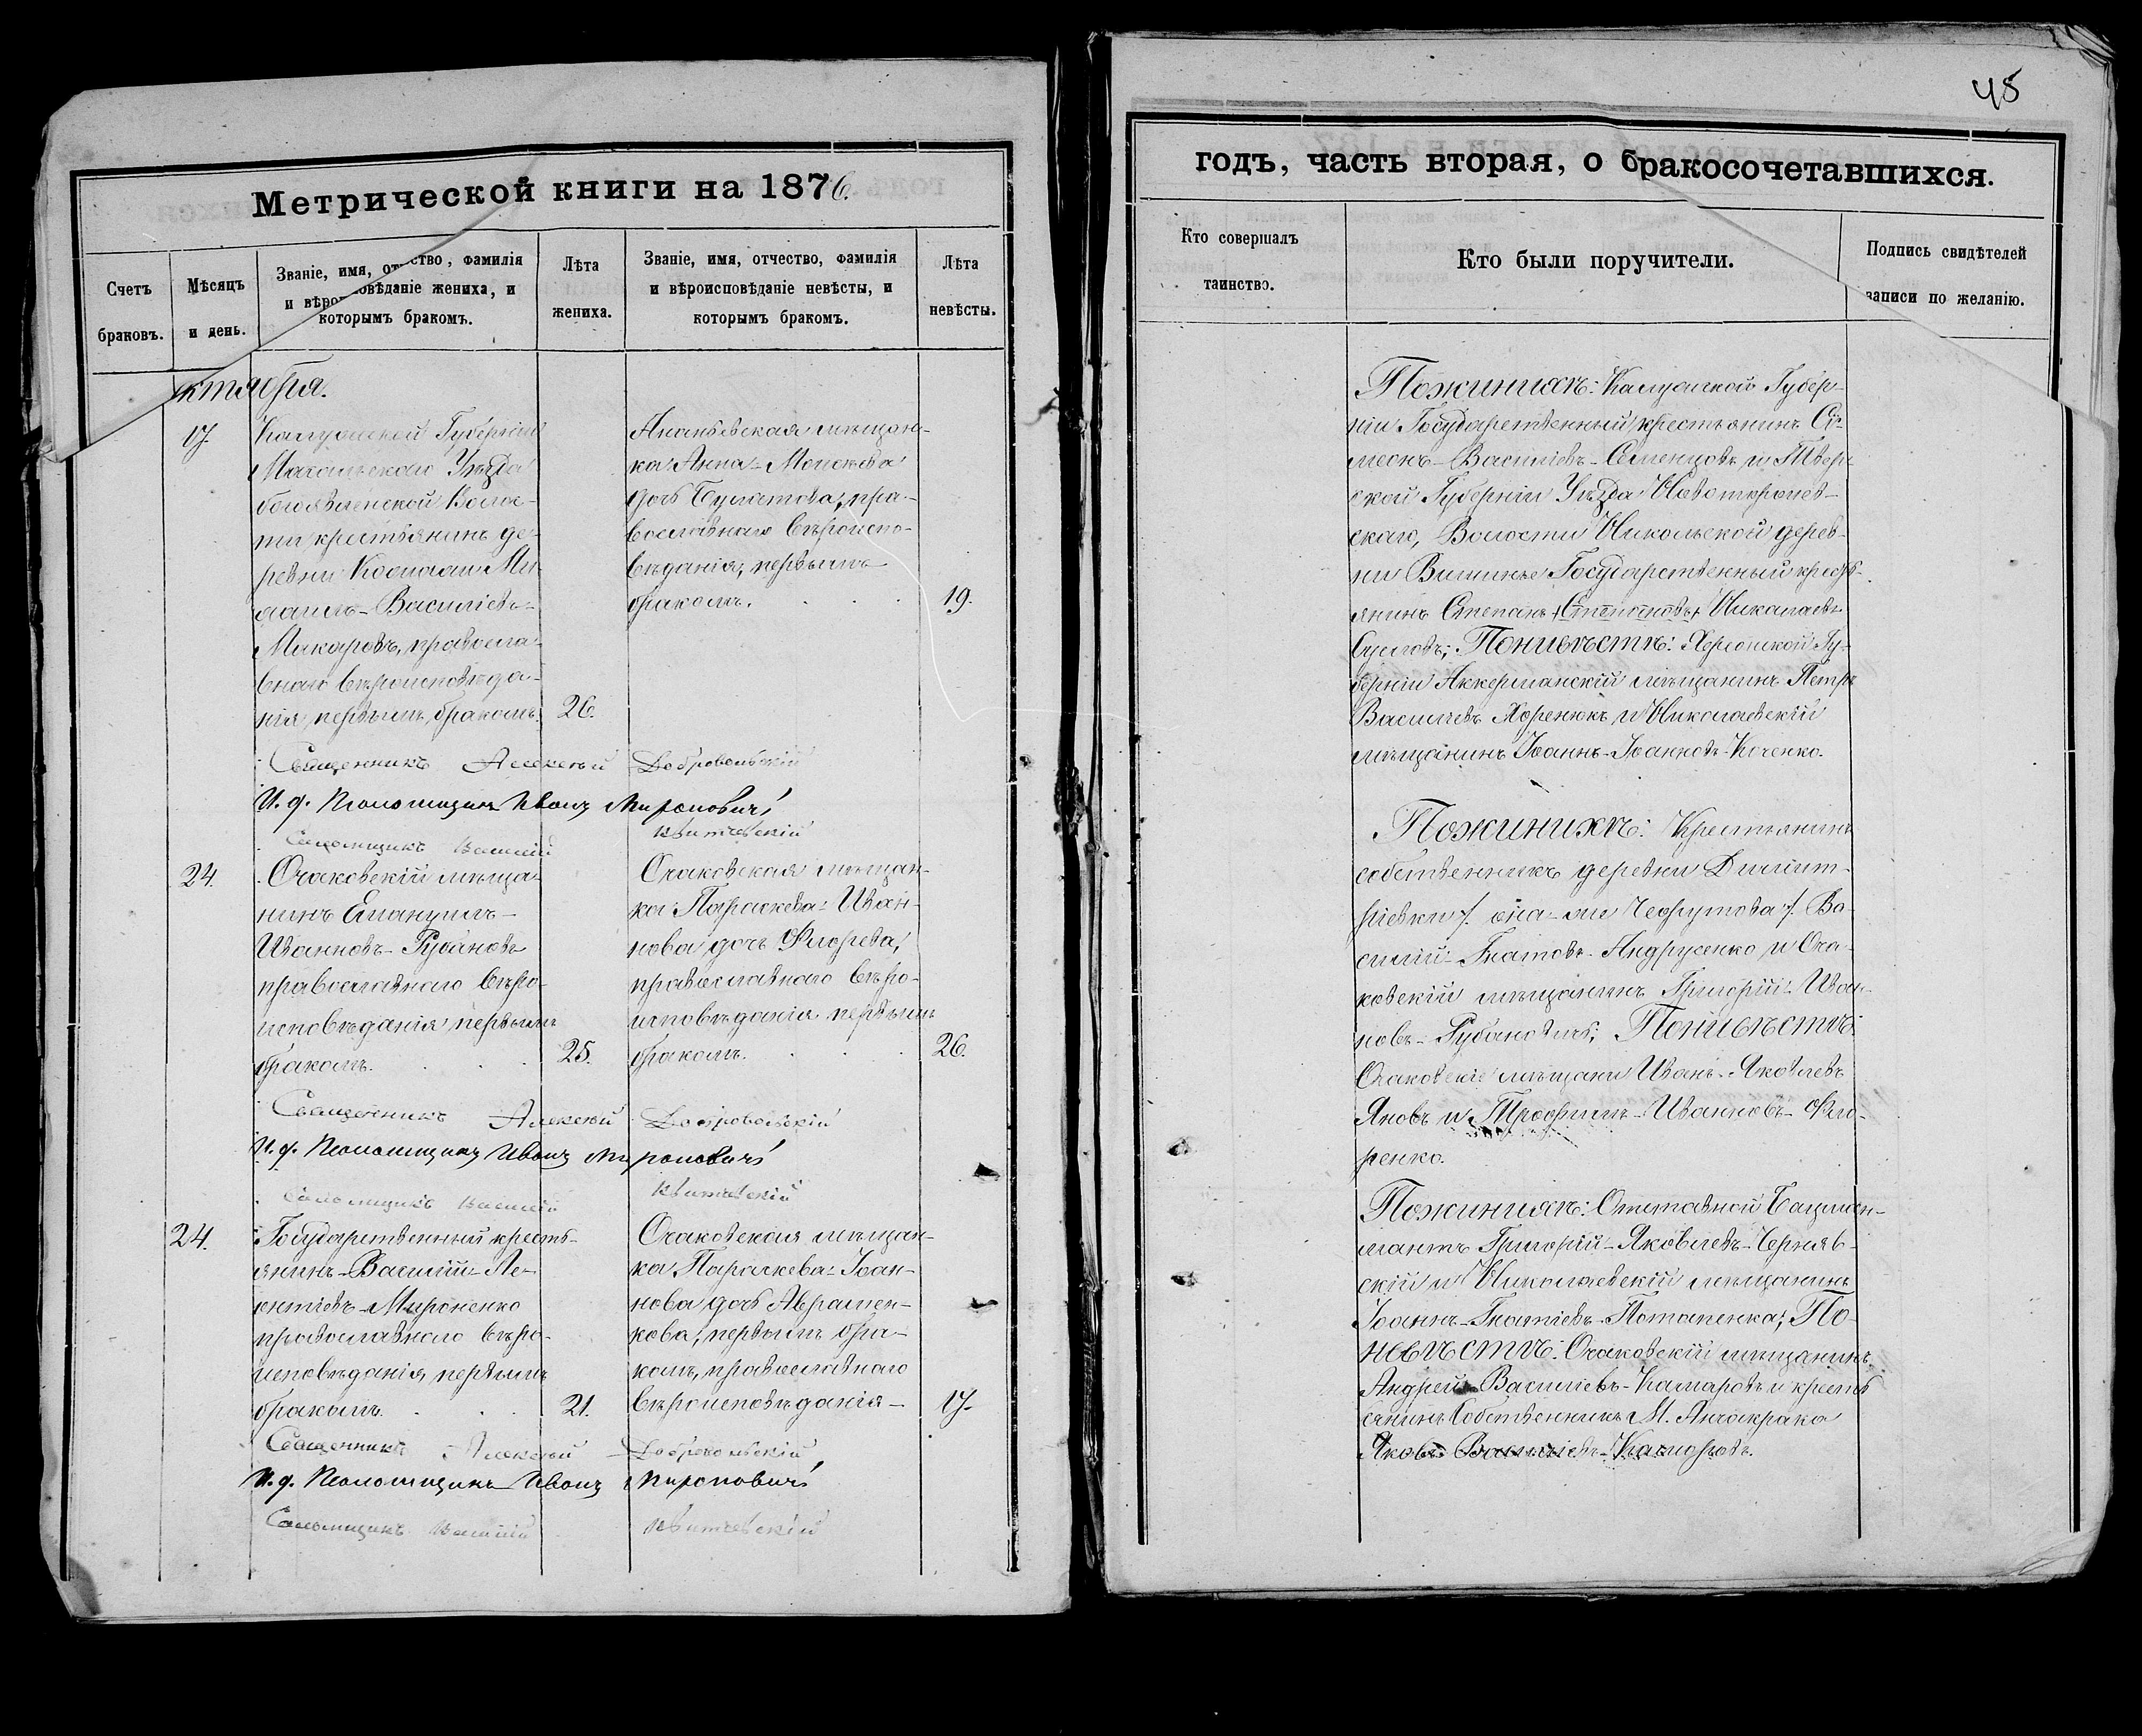 45
Метрической книги на 1876.
годъ, часть вторая, о бракосочетавшихся.
Счетъ браковъ.
Мѣсяцъ и день.
Званіе, имя, отчество, фамилія
и вѣроисповѣданіе жениха, и
которымъ бракомъ.
Лѣта жениха.
Званіе, имя, отчество, фамилія
и вѣроисповѣданіе невѣсты, и
которымъ бракомъ.
Лѣта невѣсты.
Кто совершалъ
таинство.
Кто были поручители.
Подпись свидѣтелей
записи по желанію.
ктября.
17.
Калужской Губерніи
Уѣзда
богоявленской Волос-
ти крестьянинъ де-
ревни Ми-
хаилъ-Василіевъ-
Макаровъ, правосла-
внаго вѣроисповѣда-
нія, первымъ бракомъ. 26.
Ананьевская мѣщан-
ка Анна-Моисеева
дочь Булатова, пра-
вославнаго вѣроиспо-
вѣданія, первымъ
бракомъ. 19.
Священникъ Алексей Добровольскій
И. д. Псаломщика Иванъ Мироновичъ
Псаломщикъ Василій Квитчевскій
24.
Очаковскій мѣща-
нинъ Емануилъ-
Ивановъ-Рубановъ
православнаго вѣро-
исповѣданія первымъ
бракомъ. 25.
Очаковская мѣщан-
ка Параскева-Иван-
нова дочь Флорева,
православнаго вѣро-
исповѣданія первымъ
бракомъ. 26.
Священникъ Алексей Добровольскій
И. д. Псаломщика Иванъ Мироновичъ
Псаломщикъ Василій Квитчевскій
24.
Государственный кресть-
янинъ-Василій-Ле-
онтіевъ-Мироненко
православнаго вѣро-
исповѣданія первымъ
бракомъ. 21.
Очаковская мѣщан-
ка Параскева-Іоан-
нова дочь Аврамен-
кова, первымъ бра-
комъ, православнаго
вѣроисповѣданія- 17.
Священникъ Алексей Добровольскій
И. д. Псаломщика Иванъ Мироновичъ
Псаломщикъ Василій Квитчевскій
Пожинихѣ: Калужской Губер-
ніи Государственный крестьянинъ Си-
меонъ-Василіевъ-Семенцовъ и Твер-
ской Губерніи Уѣзда Новоторжев-
скаго, Волости Никольской дерев-
ни Государственный кресть-
янинъ Степанъ Степановъ Николаевъ
Сусловъ; Поневѣстѣ: Херсонской Гу-
берніи Аккерманскій мѣщанинъ Петръ
Василіевъ Хоренюкъ и Николаевскій
мѣщанинъ Іоаннъ-Іоанновъ-Коченко.
Пожинихѣ: Крестьянинъ
собственникъ деревни Димит-
ріевки /. она-же Чефрутова /. Ва-
силій-Гнатовъ-Андрусенко и Оча-
ковскій мѣщанинъ Григорій-Иван-
новъ-Рубановичъ; Поневѣстѣ:
Очаковскіе мѣщани Иванъ-Яковлевъ
Яновъ и Трофимъ-Ивановъ-Фло-
ренко.
Пожинихѣ: Отставной Боцман-
матъ Григорій-Яковлевъ-Черняв-
скій и Николаевскій мѣщанинъ
Іоаннъ-Гнатіевъ-Потапенка; По-
невѣстѣ: Очаковскій мѣщанинъ
Андрей-Василіевъ-Камаровъ и кресть
янинъ Собственникъ М. Анчакрака
Яковъ Василіевъ-Камаровъ.